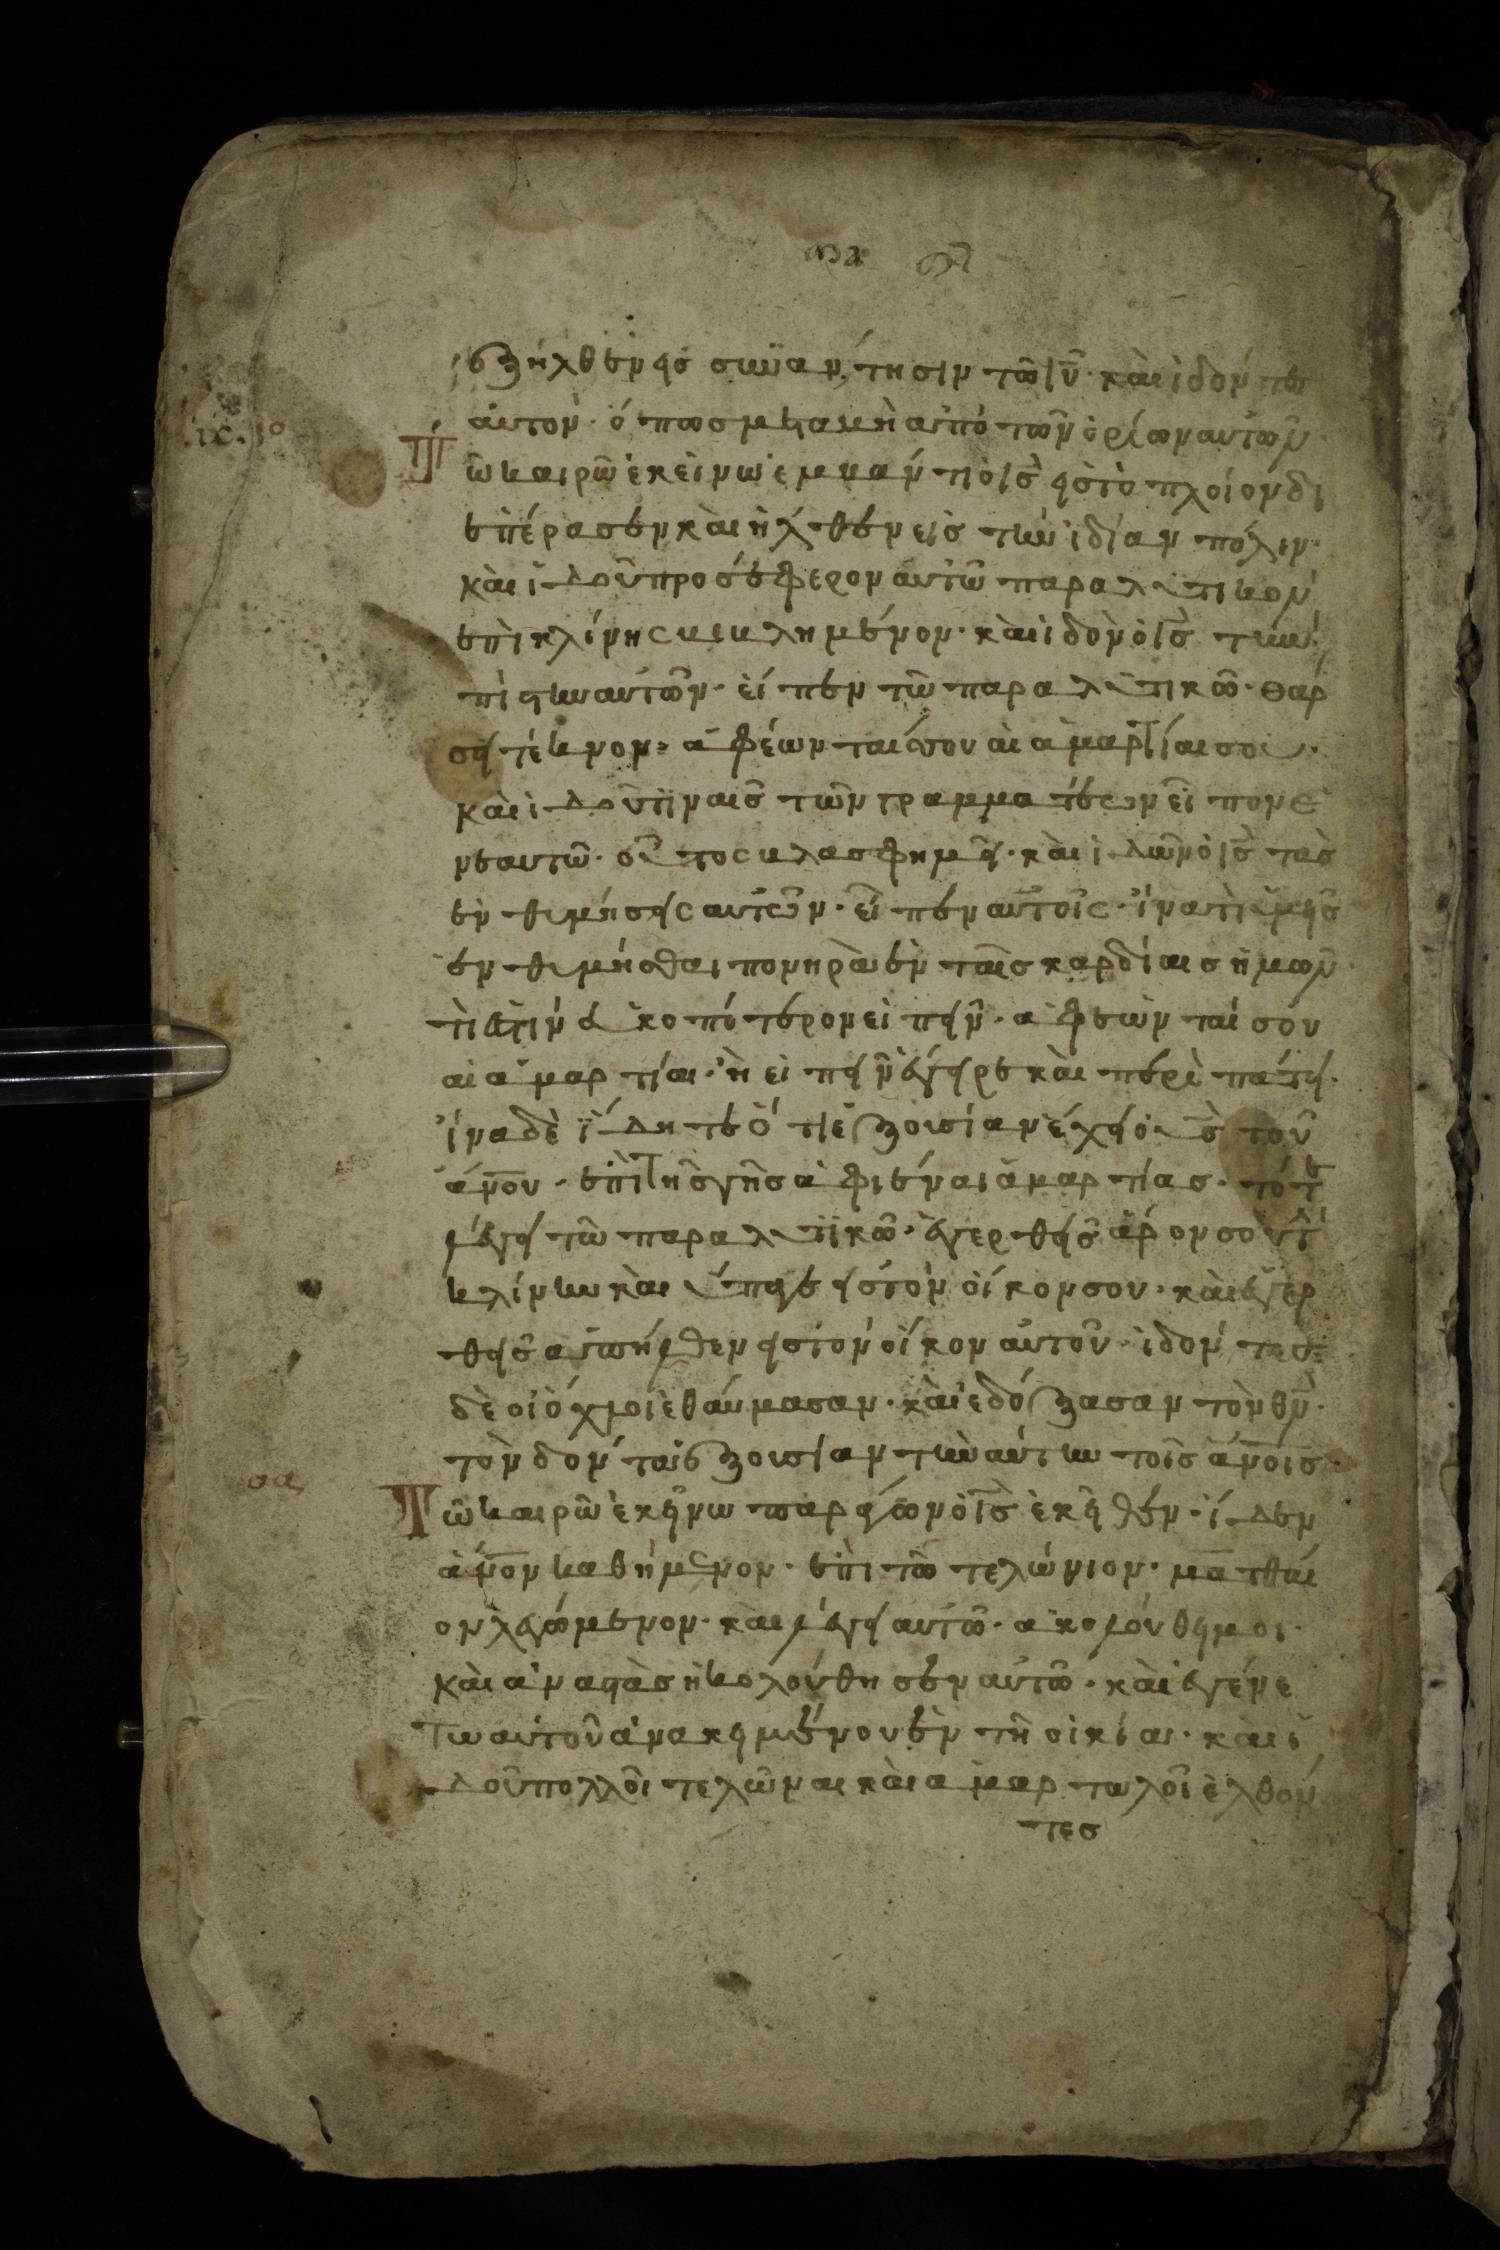 ἐξῆλθεν εἰς συνἀν,τησιν τῶ ἰῦ· καὶ ἰδόντες
αυτον· ὅπως μεταβὴ ἀπὸ τῶν ὁρίων αυτῶν·
Τῶ καιρῶ ἐκείνω ἐμβὰν τι ὁ ις εἰς τὸ πλοίον δι
επέρασεν καὶ ἤλθεν εις τὴν ἰδίαν πόλιν·
καὶ ἰδοῦ προσέφερον αυτῶ παραλυτικον
επὶ κλίνης βεβλημένον· καὶ ἰδὸν ὁ ις τὴν
πίστην αυτῶν· εἶπεν τῶ παραλυτικῶ· θαρ
σει τέκνον· ἀφέωνταί σου αι ἁμαρτίαι σου·
καὶ ἰδοῦ τιναις τῶν γραμματέων εἶπον ἐ
ν εαυτῶ· οὗτος βλασφημεῖ· καὶ ἰδὼν ὁ ις τὰς
ἐνθυμήσεις αυτῶν· εἶπεν αυτοῖς· ἵνα τὶ ὑμεῖς
ἐνθυμήσθαι πονηρὰ ἐν ταῖς καρδίαις ἡμων·
τὶ ἐστιν εὐκοπότερον εἰπεῖν· ἀφεὼν ταί σου
αι αμαρτίαι· ἢ εἰπεῖν ἔγειρε καὶ περὶπάτει·
ἵνα δὲ ἴδητε ὅτι ἐξουσίαν ἔχει ὁ υς τοῦ
ἀνου· επὶ τῆς γῆς ἀφιέναι ἁμαρτίας· τότε
λέγει τῶ παραλυτικῶ· ἐγερθεῖς ἆρον σου τὴν
κλίνην καὶ ὕπαγε εις τὸν οἶκον σου· καὶ ἐγερ
θεῖς ἀπήλθεν εις τὸν οἶκον αυτοῦ· ἰδόντες
δὲ οἱ ὄχλοι ἐθαύμασαν· καὶ ἐδόξασαν τὸν θν·
τὸν δόντα ἐξουσίαν τὴν αυτην τοῖς ἀνοις·
Τῶ καιρῶ ἐκείνω παράγων ὁ ις ἐκεῖθεν· ἴδεν
ἀνον καθήμενον· επὶ τῶ τελώνιον· ματθαί
ον λεγόμενον· καὶ λέγει αυτῶ· ἀκολούθη μοι·
καὶ ἀναστὰς ἠκολούθησεν αυτῶ· καὶ ἐγένε
τω αυτοῦ ἀνακειμένου ἐν τῆ οἰκίαι· καὶ ἰ
δοῦ πολλοῖ τελῶναι καὶ ἁμαρτωλοῖ ἐλθόν
τες